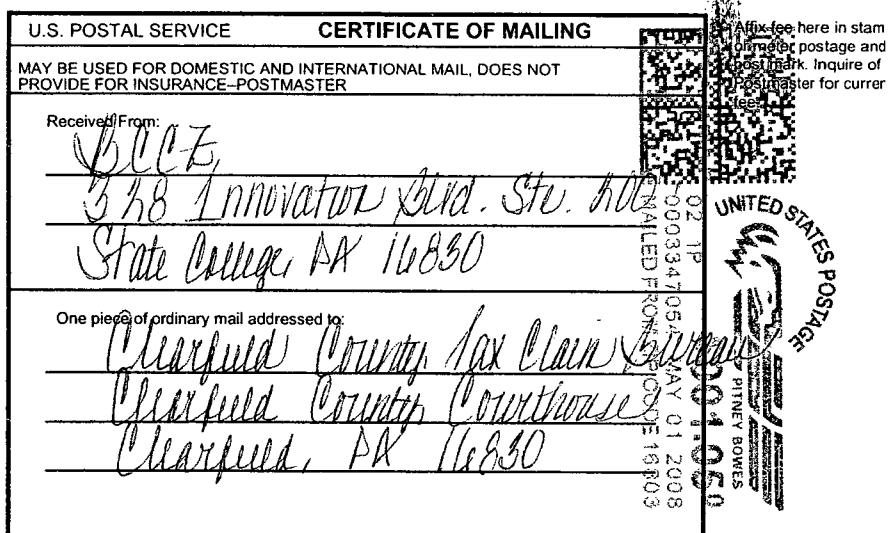 U.S. POSTAL SERVICE CERTIFICATE OF MAILING
MAY BE USED FOR DOMESTIC AND INTERNATIONAL MAIL, DOES NOT
PROVIDE FOR INSURANCE–POSTMASTER
Received From:
BCCZ,
328 Innovation Blvd. Ste. 200
State College, PA 16830
One piece of ordinary mail addressed to:
Clearfield County Tax Claim Bureau
Clearfield County Courthouse
Clearfield, PA 16830
Affix fee here in stam
or meter postage and
post mark. Inquire of
Postmaster for curren
fee.
UNITED STATES POSTAGE
PITNEY BOWES
02 1P
MAY 01 2008
MAILED FROM ZIPCODE 16803